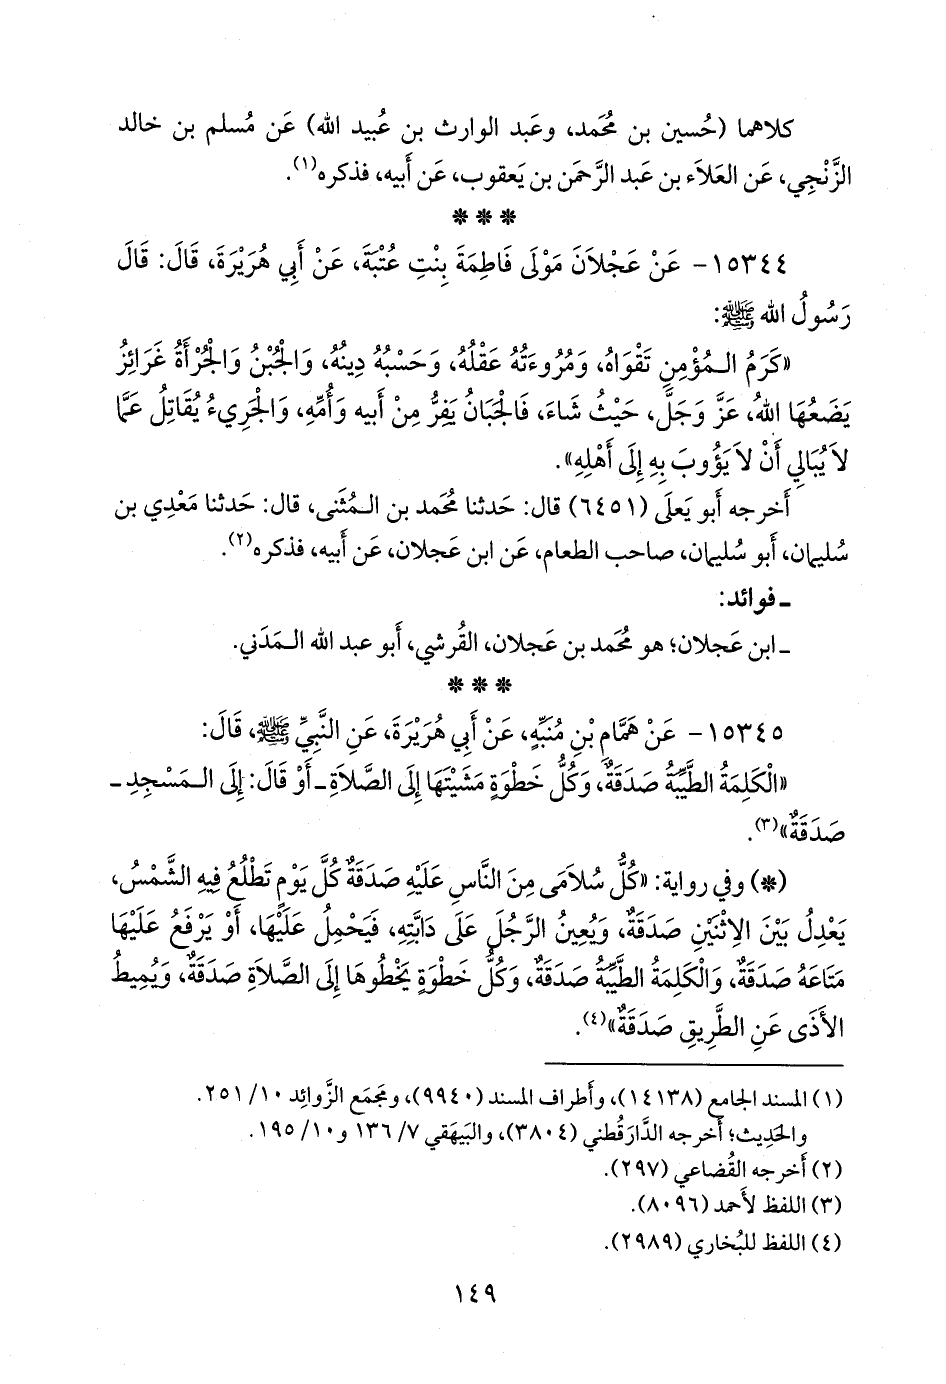 كلاهما (حُسين بن مُحَمد، وعَبد الوارث بن عُبيد الله) عَن مُسلم بن خالد
الزَّنْجِي، عَن العَلاَء بن عَبد الرَّحمَن بن يَعقوب، عَن أَبيه، فذكره(١).
* * *
١٥٣٤٤- عَنْ عَجْلاَنَ مَوْلَى فَاطِمَةَ بِنْتِ عُتْبَةَ، عَنْ أَبِي هُرَيْرَةَ، قَالَ: قَالَ
رَسُولُ الله ﷺ:
«كَرَمُ الـمُؤْمِنِ تَقْوَاهُ، وَمُرُوءَتُهُ عَقْلُهُ، وَحَسْبُهُ دِينُهُ، وَالْجُبْنُ وَالْجُرْأَةُ غَرَائِزُ
يَضَعُهَا اللهُ، عَزَّ وَجَلَّ، حَيْثُ شَاءَ، فَالْجَبَانُ يَفِرُّ مِنْ أَبِيهِ وَأُمِّهِ، وَالْجَرِيءُ يُقَاتِلُ عَمَّا
لاَ يُبَالِي أَنْ لاَ يَؤُوبَ بِهِ إِلَى أَهْلِهِ».
أَخرجه أَبو يَعلَى (٦٤٥١) قال: حَدثنا مُحَمد بن الـمُثَنى، قال: حَدثنا مَعْدِي بن
سُليمان، أَبو سُليمان، صاحب الطعام، عَن ابن عَجلان، عَن أَبيه، فذكره(٢).
ـ فوائد:
ـ ابن عَجلان؛ هو مُحَمد بن عَجلان، القُرشي، أَبو عبد الله الـمَدَني.
* * *
١٥٣٤٥- عَنْ هَمَّامِ بْنِ مُنَبِّهٍ، عَنْ أَبِي هُرَيْرَةَ، عَنِ النَّبِيِّ ﷺ، قَالَ:
«الْكَلِمَةُ الطَّيِّبَةُ صَدَقَةٌ، وَكُلُّ خَطْوَةٍ مَشَيْتَهَا إِلَى الصَّلاَةِ ـ أَوْ قَالَ: إِلَى الـمَسْجِدِ ـ
صَدَقَةٌ»(٣).
(*) وفي رواية: «كُلُّ سُلاَمَى مِنَ النَّاسِ عَلَيْهِ صَدَقَةٌ كُلَّ يَوْمٍ تَطْلُعُ فِيهِ الشَّمْسُ،
يَعْدِلُ بَيْنَ الاِثْنَيْنِ صَدَقَةٌ، وَيُعِينُ الرَّجُلَ عَلَى دَابَّتِهِ، فَيَحْمِلُ عَلَيْهَا، أَوْ يَرْفَعُ عَلَيْهَا
مَتَاعَهُ صَدَقَةٌ، وَالْكَلِمَةُ الطَّيِّبَةُ صَدَقَةٌ، وَكُلُّ خَطْوَةٍ يَخْطُوهَا إِلَى الصَّلاَةِ صَدَقَةٌ، وَيُمِيطُ
الأَذَى عَنِ الطَّرِيقِ صَدَقَةٌ»(٤).
(١) المسند الجامع (١٤١٣٨)، وأَطراف المسند (٩٩٤٠)، ومَجمَع الزَّوائِد ١٠/ ٢٥١.
والحَدِيث؛ أَخرجه الدَّارَقُطني (٣٨٠٤)، والبَيهَقي ٧/ ١٣٦ و١٠/ ١٩٥.
(٢) أَخرجه القُضاعي (٢٩٧).
(٣) اللفظ لأَحمد (٨٠٩٦).
(٤) اللفظ للبُخاري (٢٩٨٩).
١٤٩